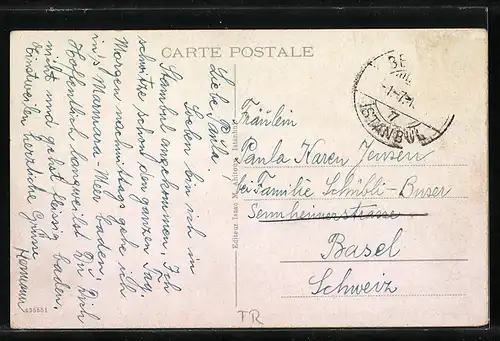 CARTE POSTALE
Liebe Paula
Soeben bin ich in
Stambul angekommen. Ich
schwitze schon den ganzen Tag.
Morgen nachmittags gehe ich
in's Marmara-Meer baden.
Hoffentlich langweilst Du Dich
nicht und gehst fleissig baden.
Einstweilen herzliche Grüsse
Hermann
135551
Editeur Isaac M. Ahitouv, Istanbul
BE
ISTANBUL
Fräulein
Paula Karen Jensen
bei Familie Schübli-Buser
Sennheimerstrasse
Basel
Schweiz
TR